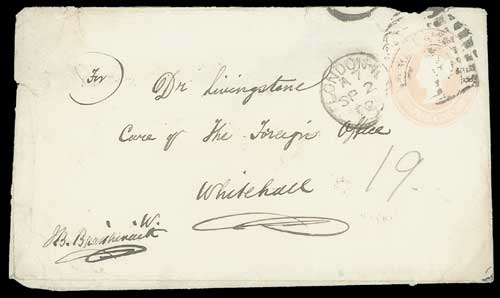 For
Dr Livingstone
Care of The Foreign Office
Whitehall
W.
LONDON-W
A 7
SP 2
19.